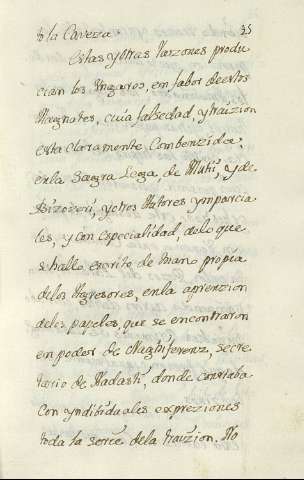 35
de la Caveza.
Estas y otras razones produ
cian los Ungaros, en fabor de estos
Magnates, cuia falsedad, y traizion
esta claramente Combenzida;
en la Sagra Lega, de Muti, y de
Bizozeri, y otros Autores ymparcia
les, y con especialidad, de lo que
se hallo escrito de mano propia
de los Agresores, en la aprenzion
de los papeles, que se encontraron
en poder de Naghiferenz, Secre
tario de Nadasti, donde constaba
con yndibiduales expreziones
toda la serie de la traizion. No